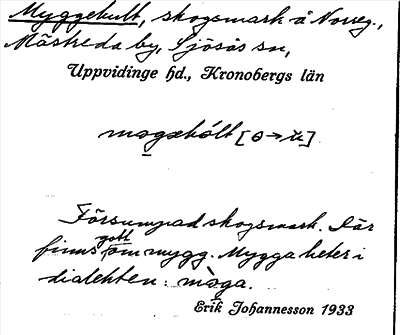 Myggekult, skogsmark å Norreg.,
Måstreda by, Sjösås sn,
Uppvidinge hd., Kronobergs län
mogekólt [o → u]
Försumpad skogsmark. Där
finns gott om mygg. Mygga heter i
dialekten: mòga.
Erik Johannesson 1933